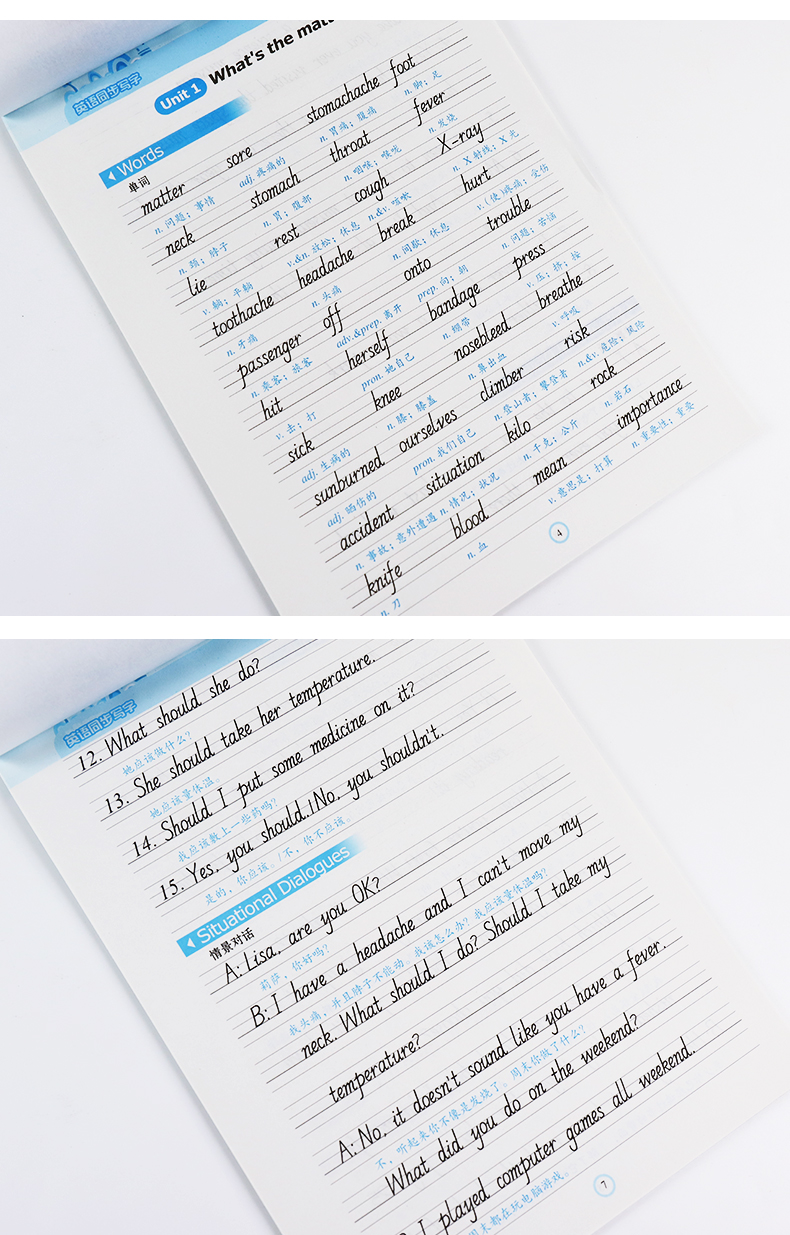 英语同步写字
Unit 1 What's the mat
Words
单词
matter sore stomachache foot
n. 问题；事情 adj. 疼痛的 n. 胃痛；腹痛 n. 脚；足
neck stomach throat fever
n. 颈；脖子 n. 胃；腹部 n. 咽喉；喉咙 n. 发烧
lie rest cough X-ray
v. 躺；平躺 v.&n. 放松；休息 n.&v. 咳嗽 n. X 射线；X 光
toothache headache break hurt
n. 牙痛 n. 头痛 n. 间歇；休息 v. (使)疼痛；受伤
passenger off onto trouble
n. 乘客；旅客 adv.&prep. 离开 prep. 向；朝 n. 问题；苦恼
hit herself bandage press
v. 击；打 pron. 她自己 n. 绷带 v. 压；挤；按
sick knee nosebleed breathe
adj. 生病的 n. 膝；膝盖 n. 鼻出血 v. 呼吸
sunburned ourselves climber risk
adj. 晒伤的 pron. 我们自己 n. 登山者；攀登者 n.&v. 危险；风险
accident situation kilo rock
n. 事故；意外遭遇 n. 情况；状况 n. 千克；公斤 n. 岩石
knife blood mean importance
n. 刀 n. 血 v. 意思是；打算 n. 重要性；重要
4
英语同步写字
12. What should she do?
她应该做什么？
13. She should take her temperature.
她应该量体温。
14. Should I put some medicine on it?
我应该敷上一些药吗？
15. Yes, you should./No, you shouldn't.
是的，你应该。/不，你不应该。
Situational Dialogues
情景对话
A: Lisa, are you OK?
莉萨，你好吗？
B: I have a headache and I can't move my
我头痛，并且脖子不能动。我该怎么办？我应该量体温吗？
neck. What should I do? Should I take my
temperature?
A: No, it doesn't sound like you have a fever.
不，听起来你不像是发烧了。周末你做了什么？
What did you do on the weekend?
I played computer games all weekend.
周末都在玩电脑游戏。
7